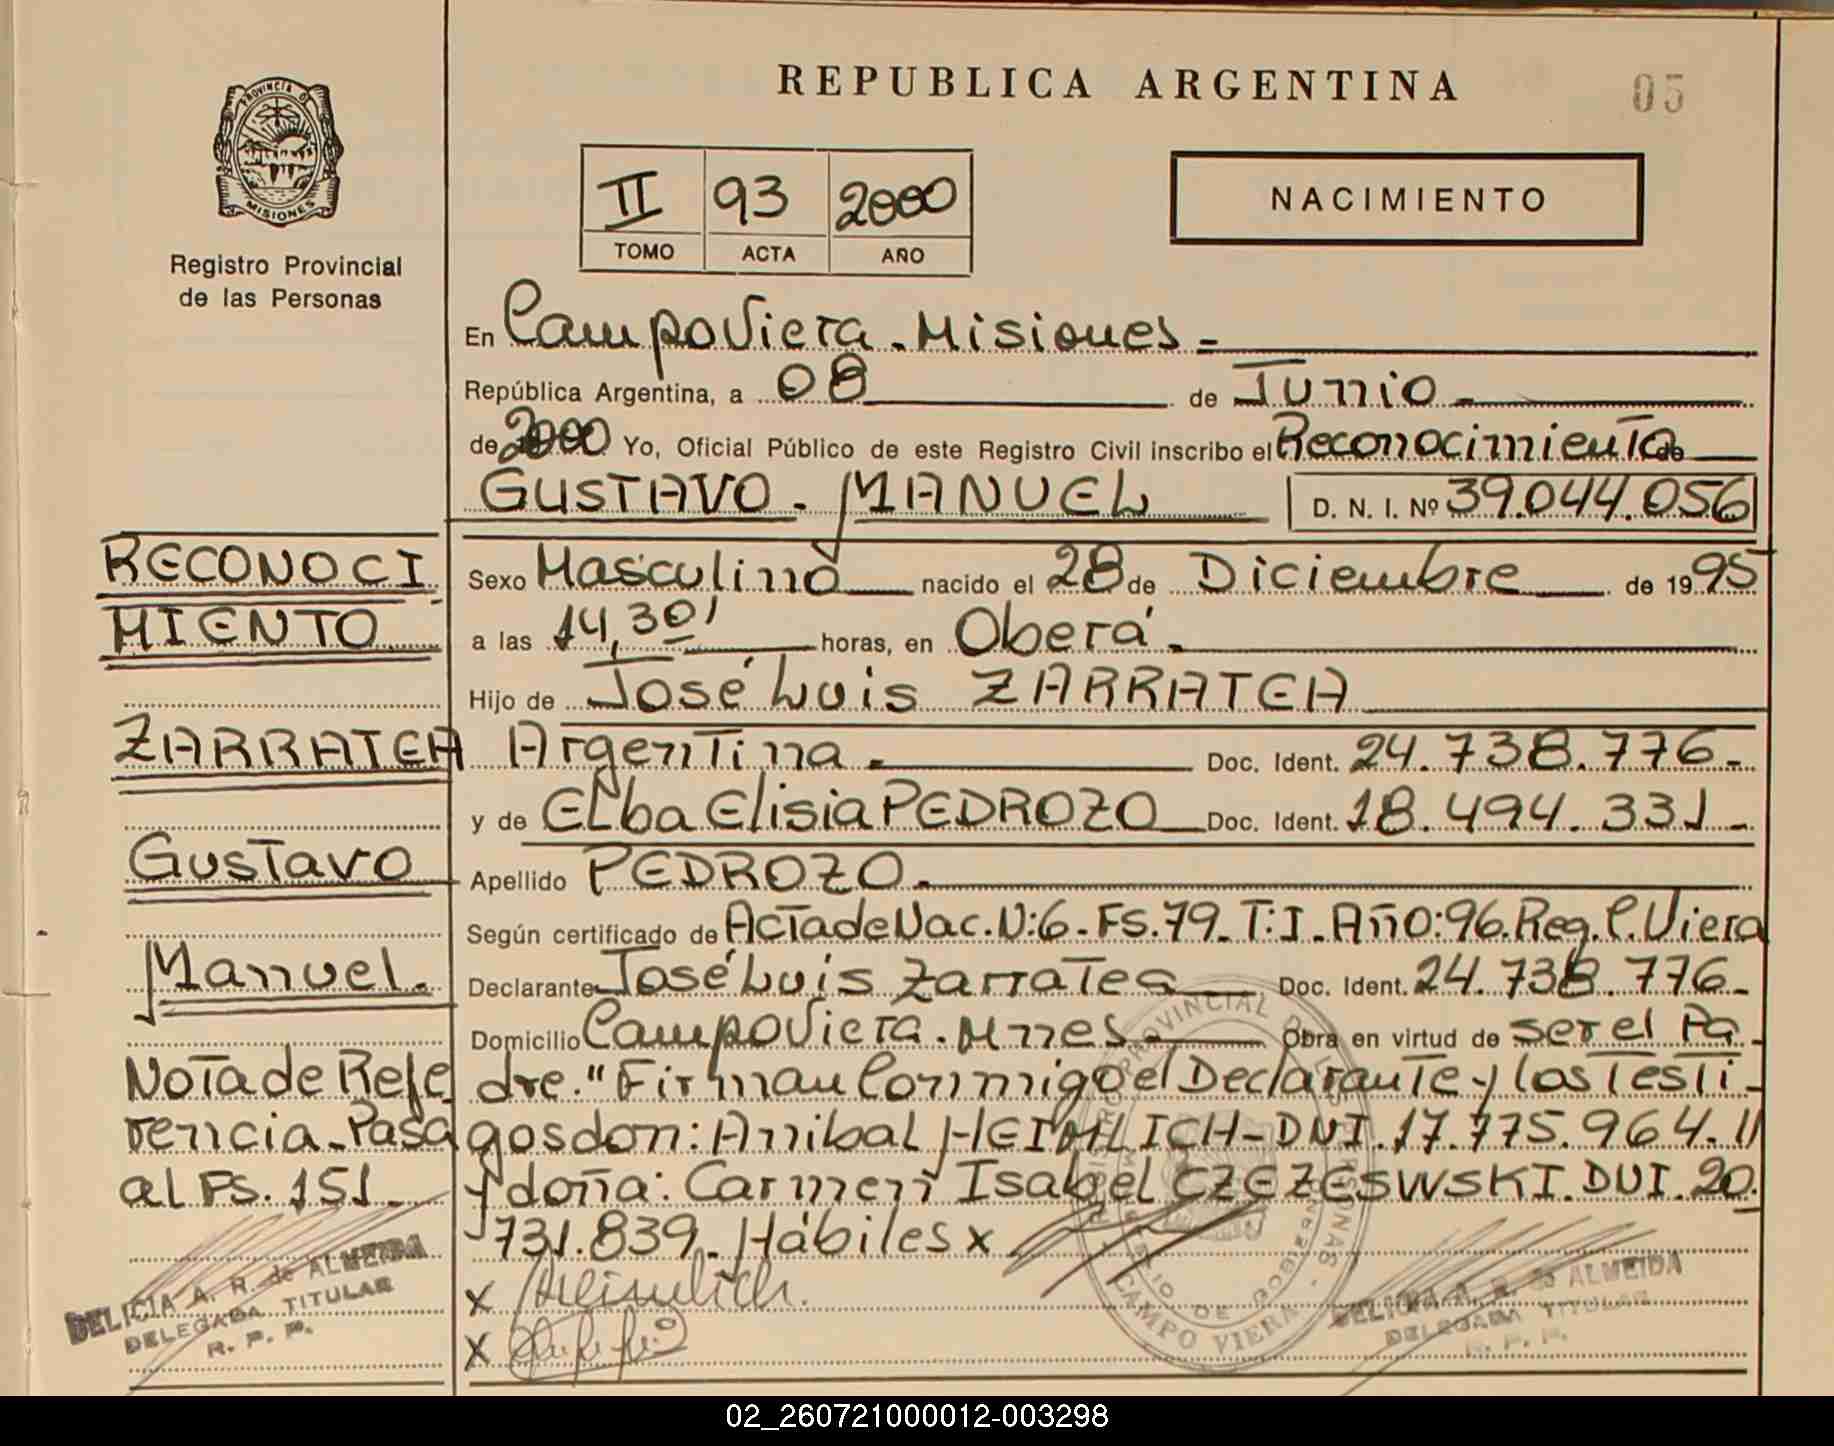 REPUBLICA ARGENTINA
05
PROVINCIA DE
MISIONES
Registro Provincial
de las Personas
II 93 2000
TOMO ACTA AÑO
NACIMIENTO
En Campo Viera - Misiones -
República Argentina, a 08 de Junio -
de 2000 Yo, Oficial Público de este Registro Civil inscribo el Reconocimiento de
GUSTAVO - MANUEL D. N. I. Nº 39.044.056
RECONOCI
MIENTO
ZARRATEA
Gustavo
Manuel.
Nota de Refe
rencia - Pasa
al Fs. 151 -
DELICIA A. R. de ALMEIDA
DELEGADA TITULAR
R. P. P.
Sexo Masculino nacido el 28 de Diciembre de 1995
a las 14,30' horas, en Oberá -
Hijo de José Luis ZARRATEA
Argentina - Doc. Ident. 24.738.776 -
y de Elba Elisia PEDROZO Doc. Ident. 18.494.331 -
Apellido PEDROZO -
Según certificado de Acta de Nac. N: 6 - Fs. 79 - T: I - Año: 96. Reg. C. Viera
Declarante José Luis Zarratea Doc. Ident. 24.738.776 -
Domicilio Campo Viera - Mnes - Obra en virtud de ser el Pa -
dre." Firman Conmigo el Declarante y los Testi -
gos don: Anibal HEIMLICH - DNI. 17.775.964. II
y doña: Carmen Isabel CZEZESWSKI. DNI. 20.
731.839 - Hábiles x
x Heimlich.
x
REGISTRO PROVINCIAL DE LAS PERSONAS - CAMPO VIERA -
DELICIA A. R. de ALMEIDA
DELEGADA TITULAR
R. P. P.
02_260721000012-003298